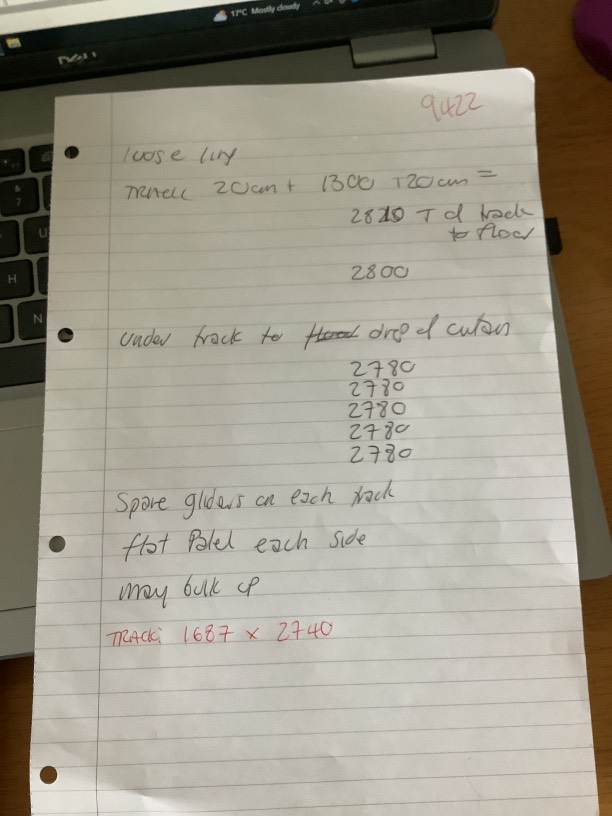 17°C Mostly cloudy
DELL
9422
loose
20cm + 1300 + 20cm =
2810 T of track
to floor
2800
under track to drop of
2780
2780
2780
2780
2780
Spare gliders on each track
flat each side
may bulk up
TRACK: 1687 x 2740
U
H
N
7